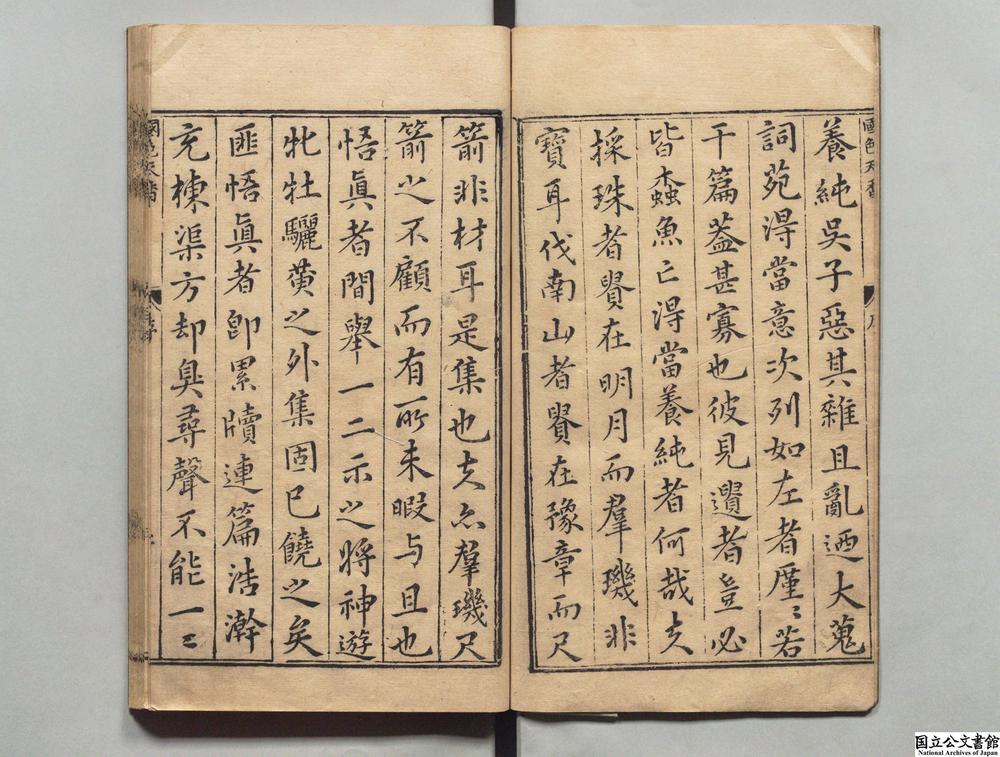 國色天香
養純吳子惡其雜且亂迺大蒐
詞苑淂當意次列如左者厪〻若
干篇葢甚寡也彼見遺者豈必
皆蟲魚亡淂當養純者何哉夫
採珠者貴在明月而羣璣非
寶耳伐南山者貴在豫章而尺
箭非材耳是集也夫亦羣璣尺
箭之不顧而有所未暇与且也
悟真者間舉一二示之將神遊
牝牡驪黄之外集固已饒之矣
匪悟真者卽累牘連篇浩瀚
充棟渠方却臭尋聲不能一二
國色天香
序
国立公文書館
National Archives of Japan